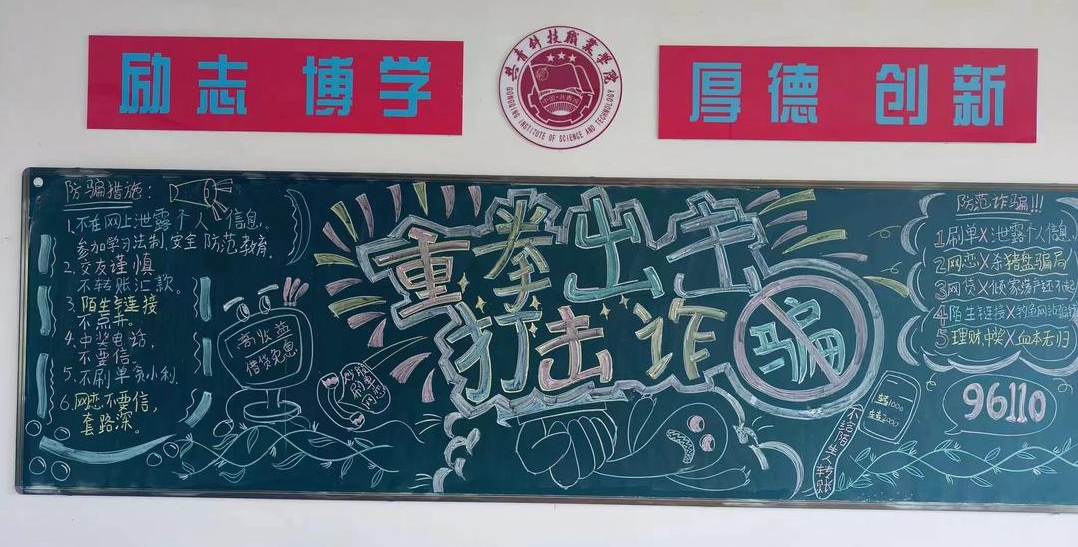 励志 博学
共青科技职业学院
中国·共青城
GONGQING INSTITUTE OF SCIENCE AND TECHNOLOGY
厚德 创新
防骗措施:
1.不在网上泄露个人信息。
参加学习法制,安全防范教育。
2.交友谨慎
不转账汇款。
3.陌生链接
不点开。
4.中奖电话,
不要信。
5.不刷单贪小利.
6.网恋不要信,
套路深。
高收益
借贷免息
炒股
刷单
网恋
重拳出击
打击诈骗
不给陌生人转账
1000
2000
防范诈骗!!!
1刷单X泄露个人信息
2网恋X杀猪盘骗局
3网贷X倾家荡产还不起
4陌生链接X钓鱼网站
5理财,中奖X血本无归
96110